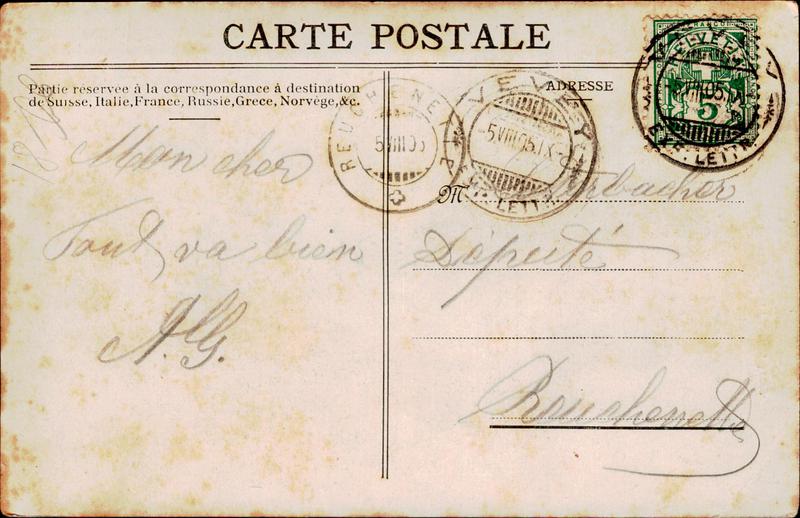 CARTE POSTALE
Partie réservée à la correspondance à destination
de Suisse, Italie, France, Russie, Grece, Norvège, &c.
ADRESSE
HELVETIA
FRANCO
5
VEVEY
5.VIII.05.IX
EXP. LETTR.
VEVEY
5.VIII.05.IX
EXP. LETTR.
REUCHENETTE
5 VIII 05
Mon cher
Tout va bien
A.G.
M
Député
Reuchenette